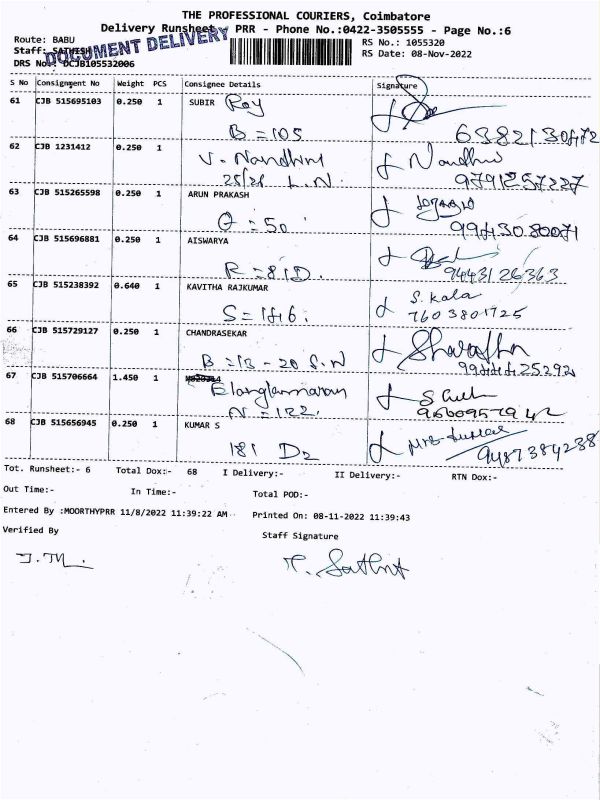 THE PROFESSIONAL COURIERS, Coimbatore
Delivery Runsheet PRR - Phone No.:0422-3505555 - Page No.:6
Route: BABU
RS No.: 1055320
Staff: SATHISH
DOCUMENT DELIVERY
RS Date: 08-Nov-2022
DRS No.: DCJB105532006
S No Consignment No Weight PCS Consignee Details Signature
61 CJB 515695103 0.250 1 SUBIR Roy
B = 105 6382130472
62 CJB 1231412 0.250 1 V. Nandhini Nandhini
25/26 L.N 9791257227
63 CJB 515265598 0.250 1 ARUN PRAKASH
O = 50 9943080071
64 CJB 515696881 0.250 1 AISWARYA
R = 81D. 9443126363
65 CJB 515238392 0.640 1 KAVITHA RAJKUMAR S. Kala
S = 146. 7603801725
66 CJB 515729127 0.250 1 CHANDRASEKAR
B = 13 - 20 S.N 9944425292
67 CJB 515706664 1.450 1 Elanglamaran
N = 122.
68 CJB 515656945 0.250 1 KUMAR S
181 D2 9487384238
Tot. Runsheet:- 6 Total Dox:- 68 I Delivery:- II Delivery:- RTN Dox:-
Out Time:- In Time:- Total POD:-
Entered By :MOORTHYPRR 11/8/2022 11:39:22 AM Printed On: 08-11-2022 11:39:43
Verified By Staff Signature